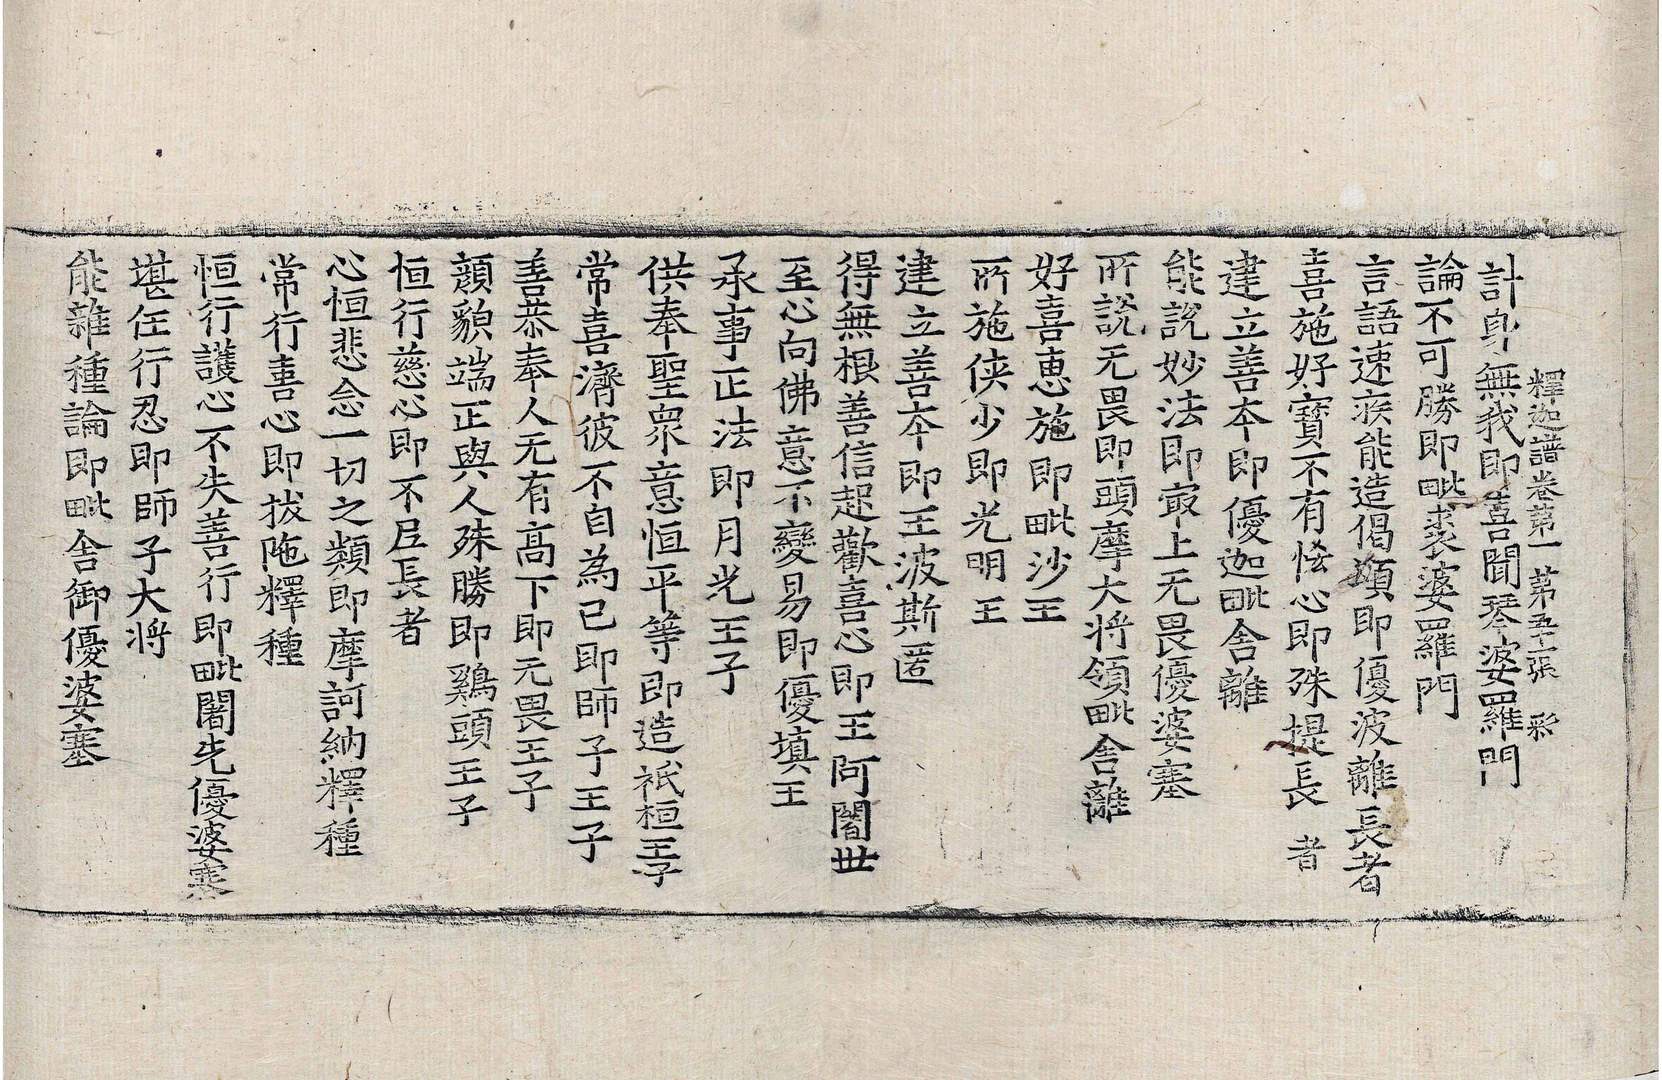 釋迦譜卷第一　第五十一張　彩
計身無我即喜聞琴婆羅門
論不可勝即毗裘婆羅門
言語速疾能造偈頌即優波離長者
喜施好寶不有悋心即殊提長者
建立善夲即優迦毗舍離
能說妙法即㝡上无畏優婆塞
所說无畏即頭摩大將領毗舍離
好喜惠施即毗沙王
所施俠少即光明王
建立善夲即王波斯匿
得無根善信起歡喜心即王阿闍世
至心向佛意不變易即優填王
承事正法即月光王子
供奉聖眾意恒平等即造祇桓王子
常喜濟彼不自為己即師子王子
善恭奉人无有高下即无畏王子
顏貌端正與人殊勝即鷄頭王子
恒行慈心即不𡰱長者
心恒悲念一切之類即摩訶納釋種
常行喜心即拔陁釋種
恒行護心不失善行即毗闍先優婆塞
堪任行忍即師子大將
能雜種論即毗舍御優婆塞